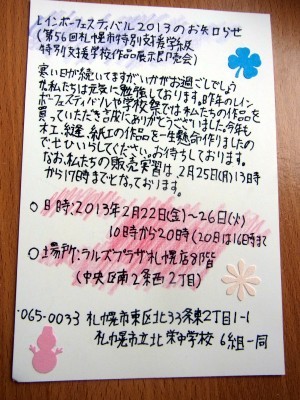 レインボーフェスティバル2013のお知らせ
(第56回札幌市特別支援学級
特別支援学校作品展示即売会)
寒い日が続いてますがいかがお過ごしでしょう
か。私たちは元気に勉強しております。昨年のレイン
ボーフェスティバルや学校祭では私たちの作品を
買っていただき誠にありがとうございました。今年も
木工、縫工、紙工の作品を一生懸命作りましたの
でぜひいらしてください。お待ちしております。
なお、私たちの販売実習は2月25日(月)13時
から17時までとなっております。
○日時:2013年2月22日(金)~26日(火)
10時から20時(20日は16時まで
○場所:ラルズプラザ札幌店8階
(中央区南2条西2丁目)
065-0033 札幌市東区北33条東2丁目1-1
札幌市立北栄中学校 6組一同